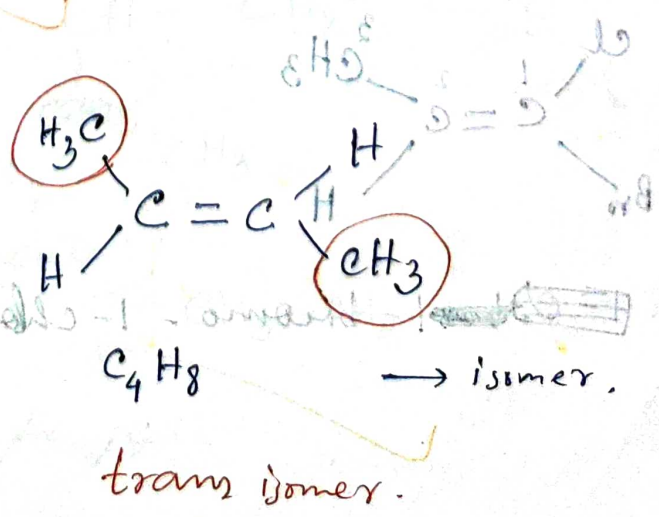 H3C H
C = C
H CH3
C4H8 → isomer.
trans isomer.